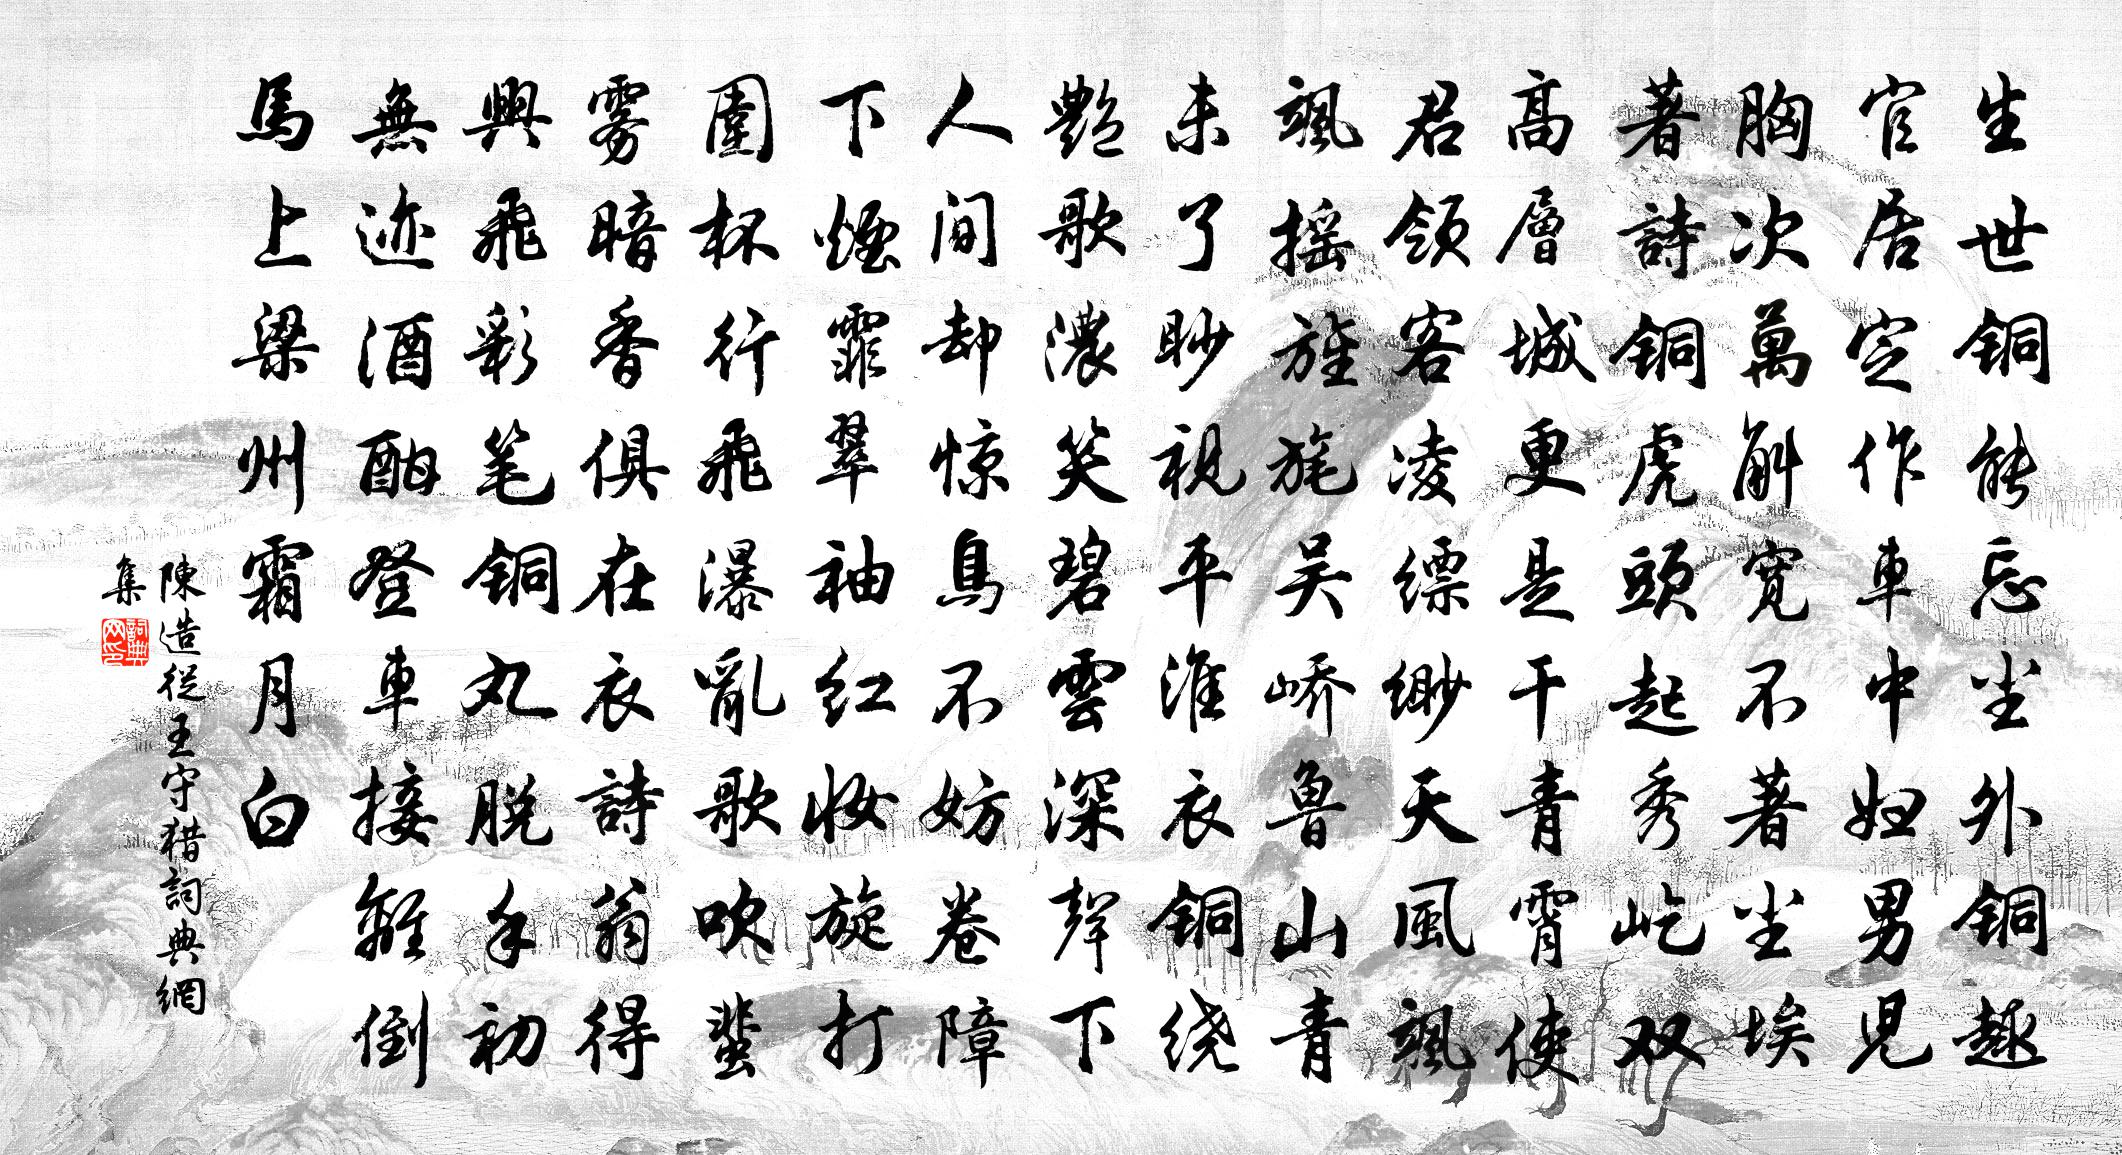 生世铜能忘尘外铜趣
官居定作車中妇男児
胸次萬斛宽不著尘埃
著詩铜虎頭起秀屹双
高層城更是干青霄使
君领客凌缥缈天風颯
颯摇旌旄吴峤魯山青
未了眇視平淮衣铜绕
艷歌濃笑碧雲深聲下
人间却惊鳥不妨卷障
下煙霏翠袖红妆旋打
圍杯行飛瀑亂歌吹蜚
雾暗香俱在衣詩翁得
興飛彩笔铜丸脱手初
無迹酒酣登車接離倒
馬上梁州霜月白
陳造從王守猎詞典網
集
詞典网印